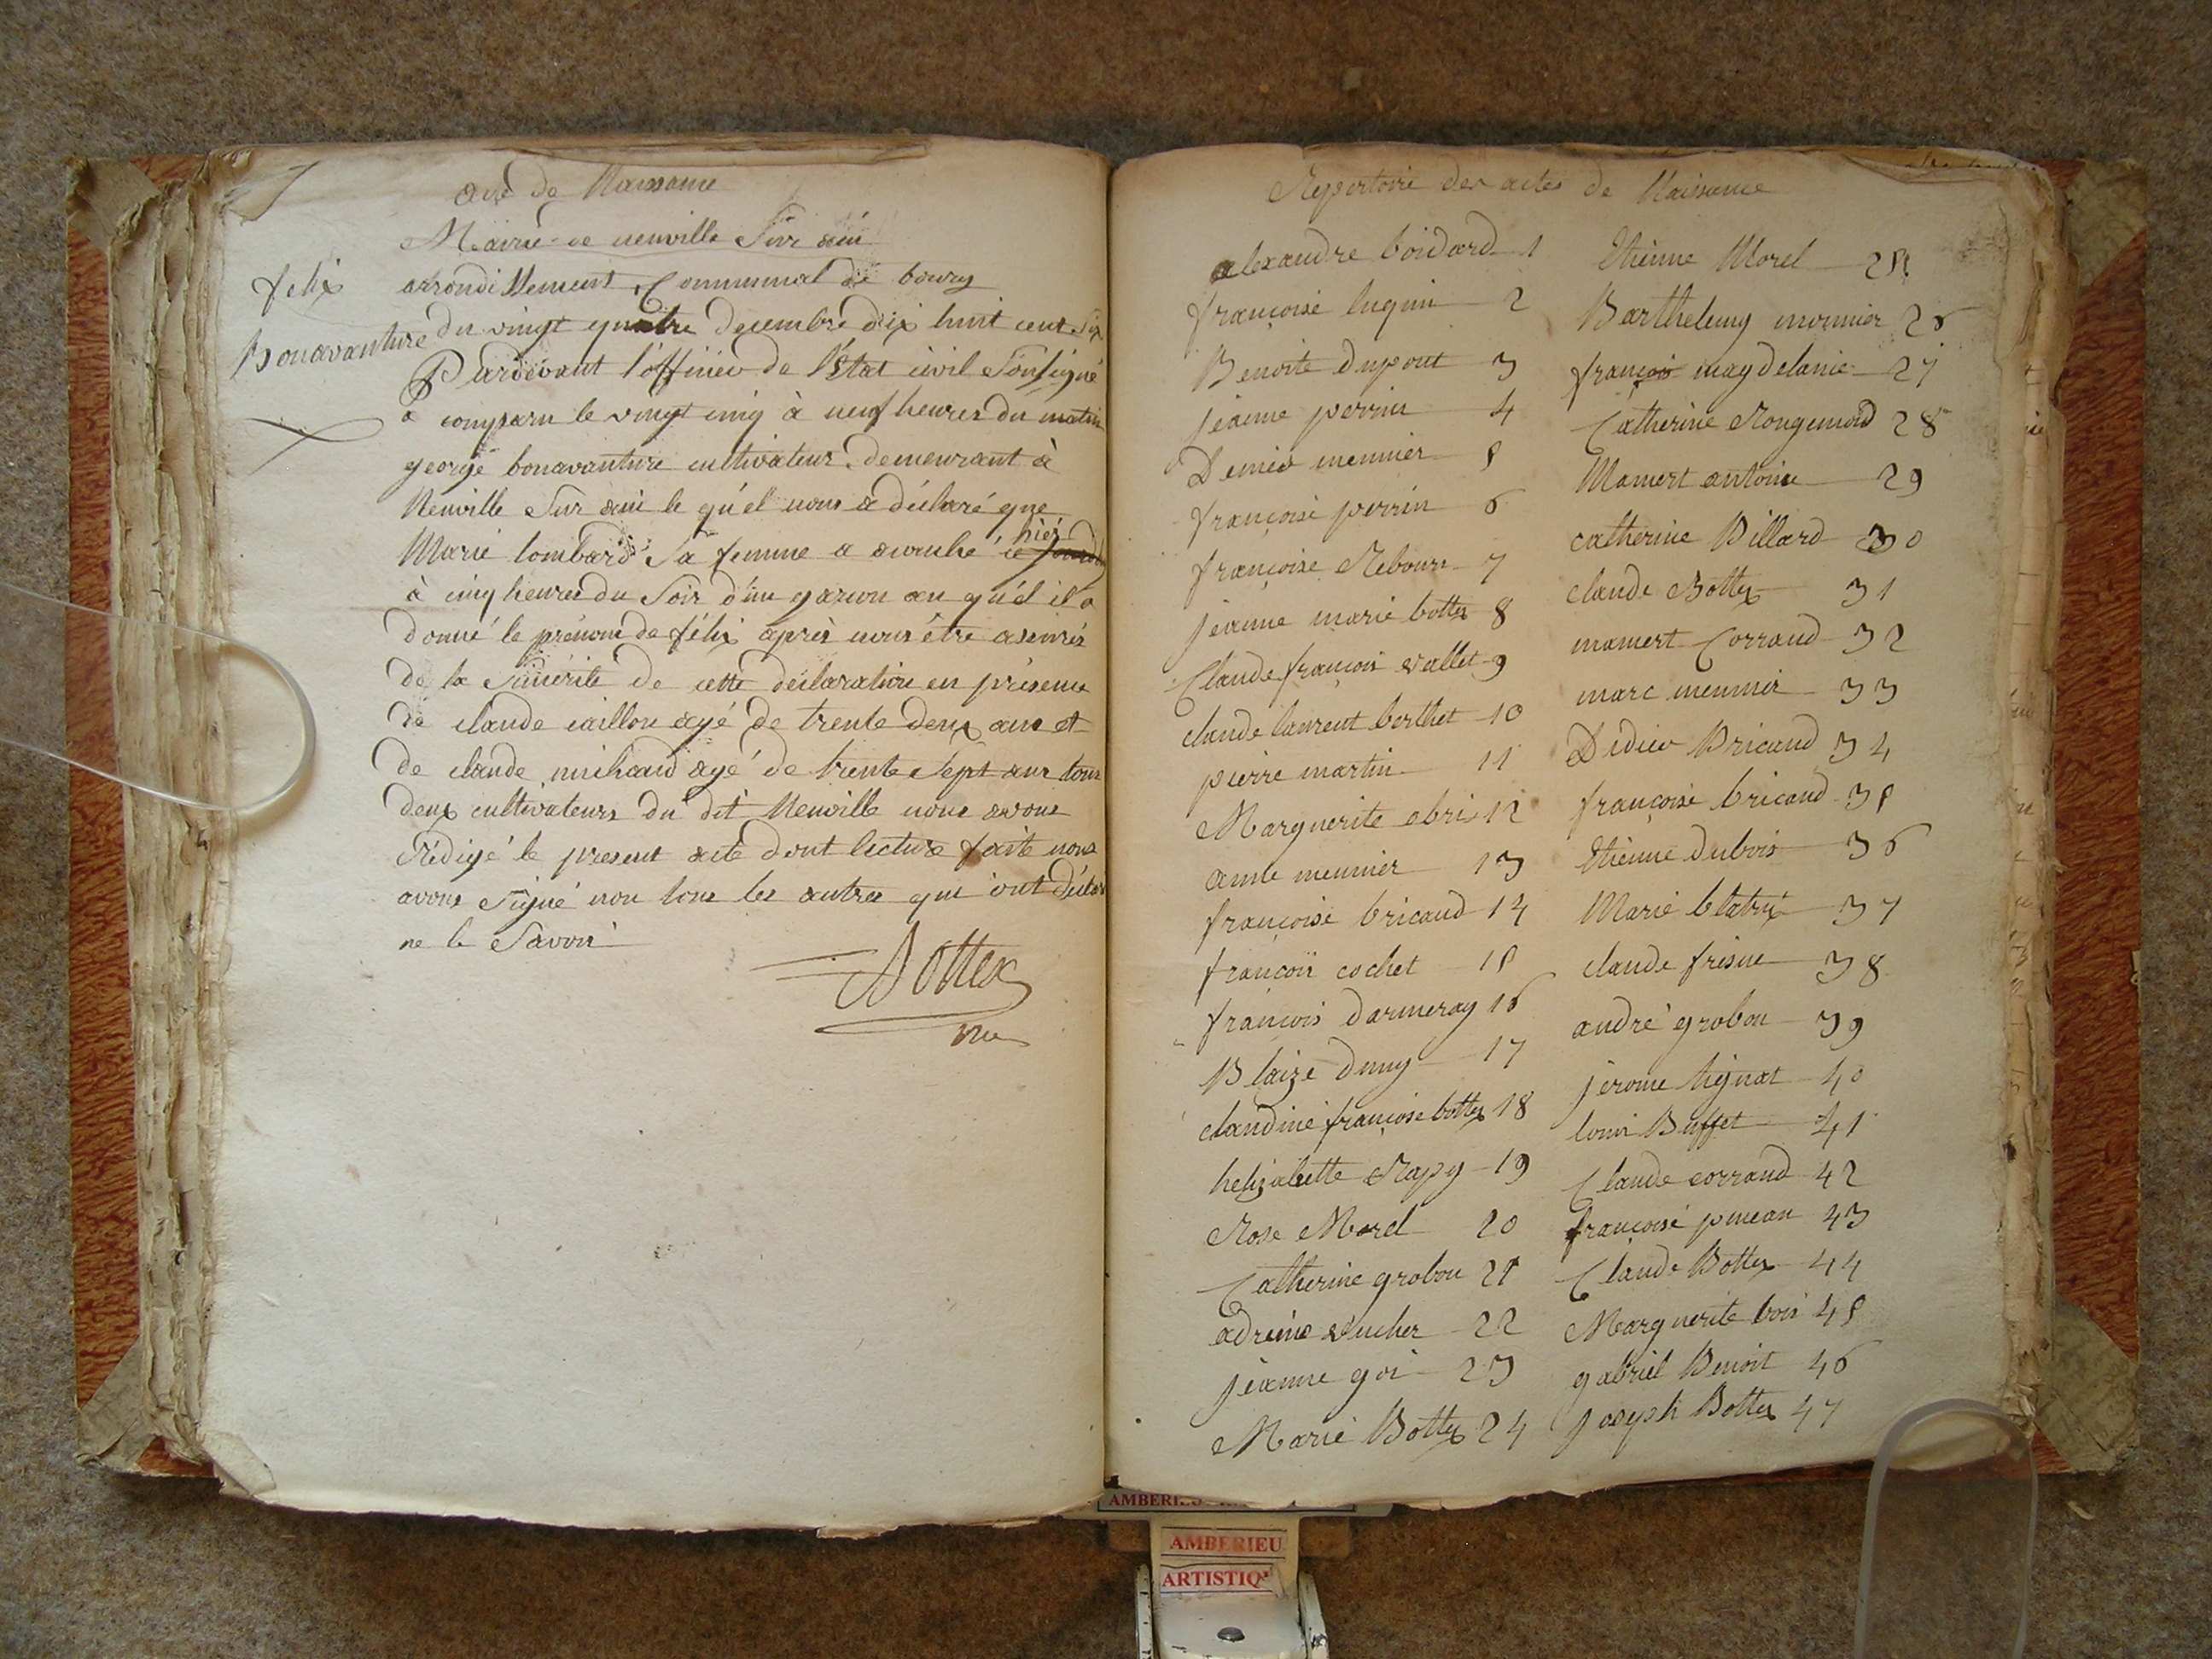 acte de Naissance
Mairie de neuville Sur ain
arrondissement Communal de bourg
felix
bonavanture
du vingt quatre decembre dix huit cent Six
Pardevant l'officier de l'État civil Soussigné
a comparu le vingt cinq à neuf heures du matin
george bonavanture cultivateur demeurant à
Neuville Sur ain le qu'el nous a déclaré que
hier
Marie lombard Sa femme a accouché ce jourd
à cinq heures du Soir d'un garcon au qu'el il a
donné le prénom de félix après nous être assurés
de la Sincérité de cette declaration en présence
de claude caillon agé de trente deux ans et
de claude michaud agé de trente Sept ans tous
deux cultivateurs du dit Neuville nous avons
rédigé le present acte dont lecture faite nous
avons Signé non tous les autres qui ont déclaré
ne le Savoir
Bottex
Répertoire des actes de Naissance
alexandre boidard 1
françoise luquin 2
Benoite dupont 3
jeanne perrin 4
Denis meunier 5
françoise perrin 6
françoise Rebours 7
jeanne marie bottex 8
Claude françois vallet 9
claude laurent berthet 10
pierre martin 11
Marguerite abri 12
anne meunier 13
françoise bricaud 14
françois cochet 15
françois darmeray 16
Blaize Dumy 17
claudine françoise bottex 18
helizabette Rapy 19
Rose Morel 20
Catherine grobon 21
adriene vucher 22
jeanne goi 23
Marie Bottex 24
Etienne Morel 25
Barthelemy monnier 26
françois maydelanie 27
Catherine Rougemond 28
Mamert antoine 29
catherine Billard 30
claude Bottex 31
mamert Corraud 32
marc meunier 33
Didier Bricaud 34
françoise bricaud 35
Etienne dubois 36
Marie blatrix 37
claude fresne 38
andré grobon 39
jerome tignat 40
louis Buffet 41
Claude corraud 42
françoise puneau 43
Claude Bottex 44
Marguerite bois 45
gabriel Benoit 46
joseph Bottex 47
AMBERIEU
ARTISTIQ